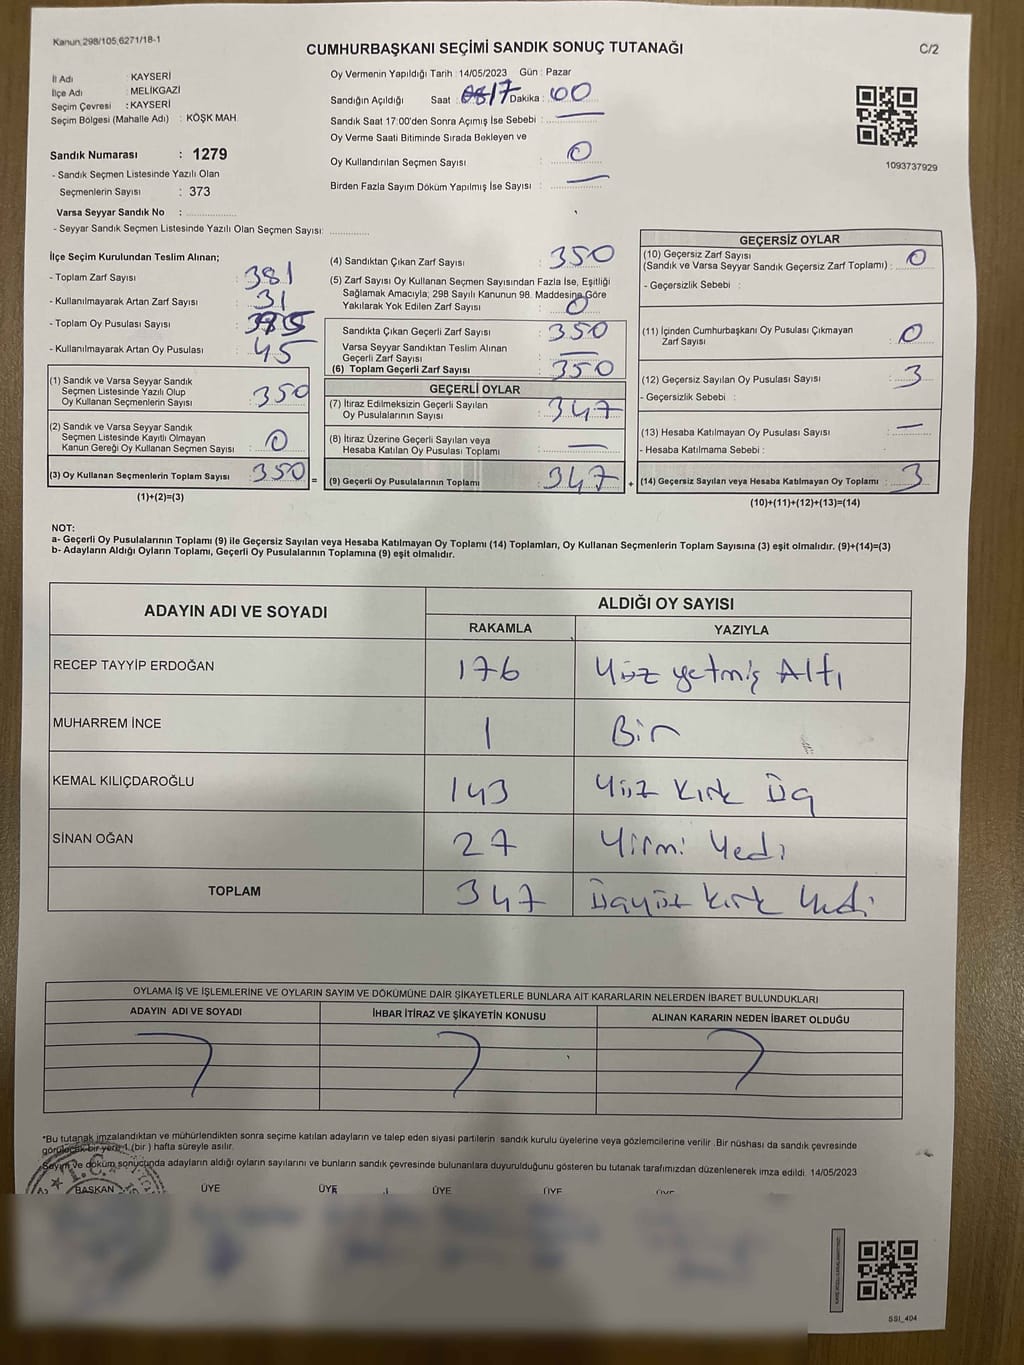 Kanun:298/105,6271/18-1
CUMHURBAŞKANI SEÇİMİ SANDIK SONUÇ TUTANAĞI
C/2
İl Adı : KAYSERİ
İlçe Adı : MELİKGAZİ
Seçim Çevresi : KAYSERİ
Seçim Bölgesi (Mahalle Adı) : KÖŞK MAH.
Sandık Numarası : 1279
- Sandık Seçmen Listesinde Yazılı Olan
Seçmenlerin Sayısı : 373
Varsa Seyyar Sandık No :
- Seyyar Sandık Seçmen Listesinde Yazılı Olan Seçmen Sayısı:
Oy Vermenin Yapıldığı Tarih : 14/05/2023 Gün : Pazar
Sandığın Açıldığı Saat : 17 Dakika : 00
Sandık Saat 17:00'den Sonra Açmış İse Sebebi :
Oy Verme Saati Bitiminde Sırada Bekleyen ve
Oy Kullandırılan Seçmen Sayısı : 0
Birden Fazla Sayım Döküm Yapılmış İse Sayısı : —
1093737929
İlçe Seçim Kurulundan Teslim Alınan;
- Toplam Zarf Sayısı : 381
- Kullanılmayarak Artan Zarf Sayısı : 31
- Toplam Oy Pusulası Sayısı :
- Kullanılmayarak Artan Oy Pusulası : 45
(1) Sandık ve Varsa Seyyar Sandık
Seçmen Listesinde Yazılı Olup
Oy Kullanan Seçmenlerin Sayısı : 350
(2) Sandık ve Varsa Seyyar Sandık
Seçmen Listesinde Kayıtlı Olmayan
Kanun Gereği Oy Kullanan Seçmen Sayısı : 0
(3) Oy Kullanan Seçmenlerin Toplam Sayısı : 350 =
(1)+(2)=(3)
(4) Sandıktan Çıkan Zarf Sayısı : 350
(5) Zarf Sayısı Oy Kullanan Seçmen Sayısından Fazla İse, Eşitliği
Sağlamak Amacıyla; 298 Sayılı Kanunun 98. Maddesine Göre
Yakılarak Yok Edilen Zarf Sayısı : 0
Sandıkta Çıkan Geçerli Zarf Sayısı : 350
Varsa Seyyar Sandıktan Teslim Alınan
Geçerli Zarf Sayısı : —
(6) Toplam Geçerli Zarf Sayısı : 350
GEÇERLİ OYLAR
(7) İtiraz Edilmeksizin Geçerli Sayılan
Oy Pusulalarının Sayısı : 347
(8) İtiraz Üzerine Geçerli Sayılan veya
Hesaba Katılan Oy Pusulası Toplamı : —
(9) Geçerli Oy Pusulalarının Toplamı : 347 +
GEÇERSİZ OYLAR
(10) Geçersiz Zarf Sayısı
(Sandık ve Varsa Seyyar Sandık Geçersiz Zarf Toplamı) : 0
- Geçersizlik Sebebi :
(11) İçinden Cumhurbaşkanı Oy Pusulası Çıkmayan
Zarf Sayısı : 0
(12) Geçersiz Sayılan Oy Pusulası Sayısı : 3
- Geçersizlik Sebebi :
(13) Hesaba Katılmayan Oy Pusulası Sayısı : —
- Hesaba Katılmama Sebebi :
(14) Geçersiz Sayılan veya Hesaba Katılmayan Oy Toplamı : 3
(10)+(11)+(12)+(13)=(14)
NOT:
a- Geçerli Oy Pusulalarının Toplamı (9) ile Geçersiz Sayılan veya Hesaba Katılmayan Oy Toplamı (14) Toplamları, Oy Kullanan Seçmenlerin Toplam Sayısına (3) eşit olmalıdır. (9)+(14)=(3)
b- Adayların Aldığı Oyların Toplamı, Geçerli Oy Pusulalarının Toplamına (9) eşit olmalıdır.
ADAYIN ADI VE SOYADI
ALDIĞI OY SAYISI
RAKAMLA YAZIYLA
RECEP TAYYİP ERDOĞAN 176 Yüz yetmiş Altı
MUHARREM İNCE 1 Bir
KEMAL KILIÇDAROĞLU 143 Yüz Kırk Üç
SİNAN OĞAN 27 Yirmi Yedi
TOPLAM 347 Üçyüz Kırk Yedi
OYLAMA İŞ VE İŞLEMLERİNE VE OYLARIN SAYIM VE DÖKÜMÜNE DAİR ŞİKAYETLERLE BUNLARA AİT KARARLARIN NELERDEN İBARET BULUNDUKLARI
ADAYIN ADI VE SOYADI İHBAR İTİRAZ VE ŞİKAYETİN KONUSU ALINAN KARARIN NEDEN İBARET OLDUĞU
*Bu tutanak imzalandıktan ve mühürlendikten sonra seçime katılan adayların ve talep eden siyasi partilerin sandık kurulu üyelerine veya gözlemcilerine verilir. Bir nüshası da sandık çevresinde
görülecek bir yere 1 (bir) hafta süreyle asılır.
Sayım ve döküm sonucunda adayların aldığı oyların sayılarını ve bunların sandık çevresinde bulunanlara duyurulduğunu gösteren bu tutanak tarafımızdan düzenlenerek imza edildi. 14/05/2023
T.C.
BAŞKAN ÜYE ÜYE ÜYE ÜYE ÜYE
SSI_404